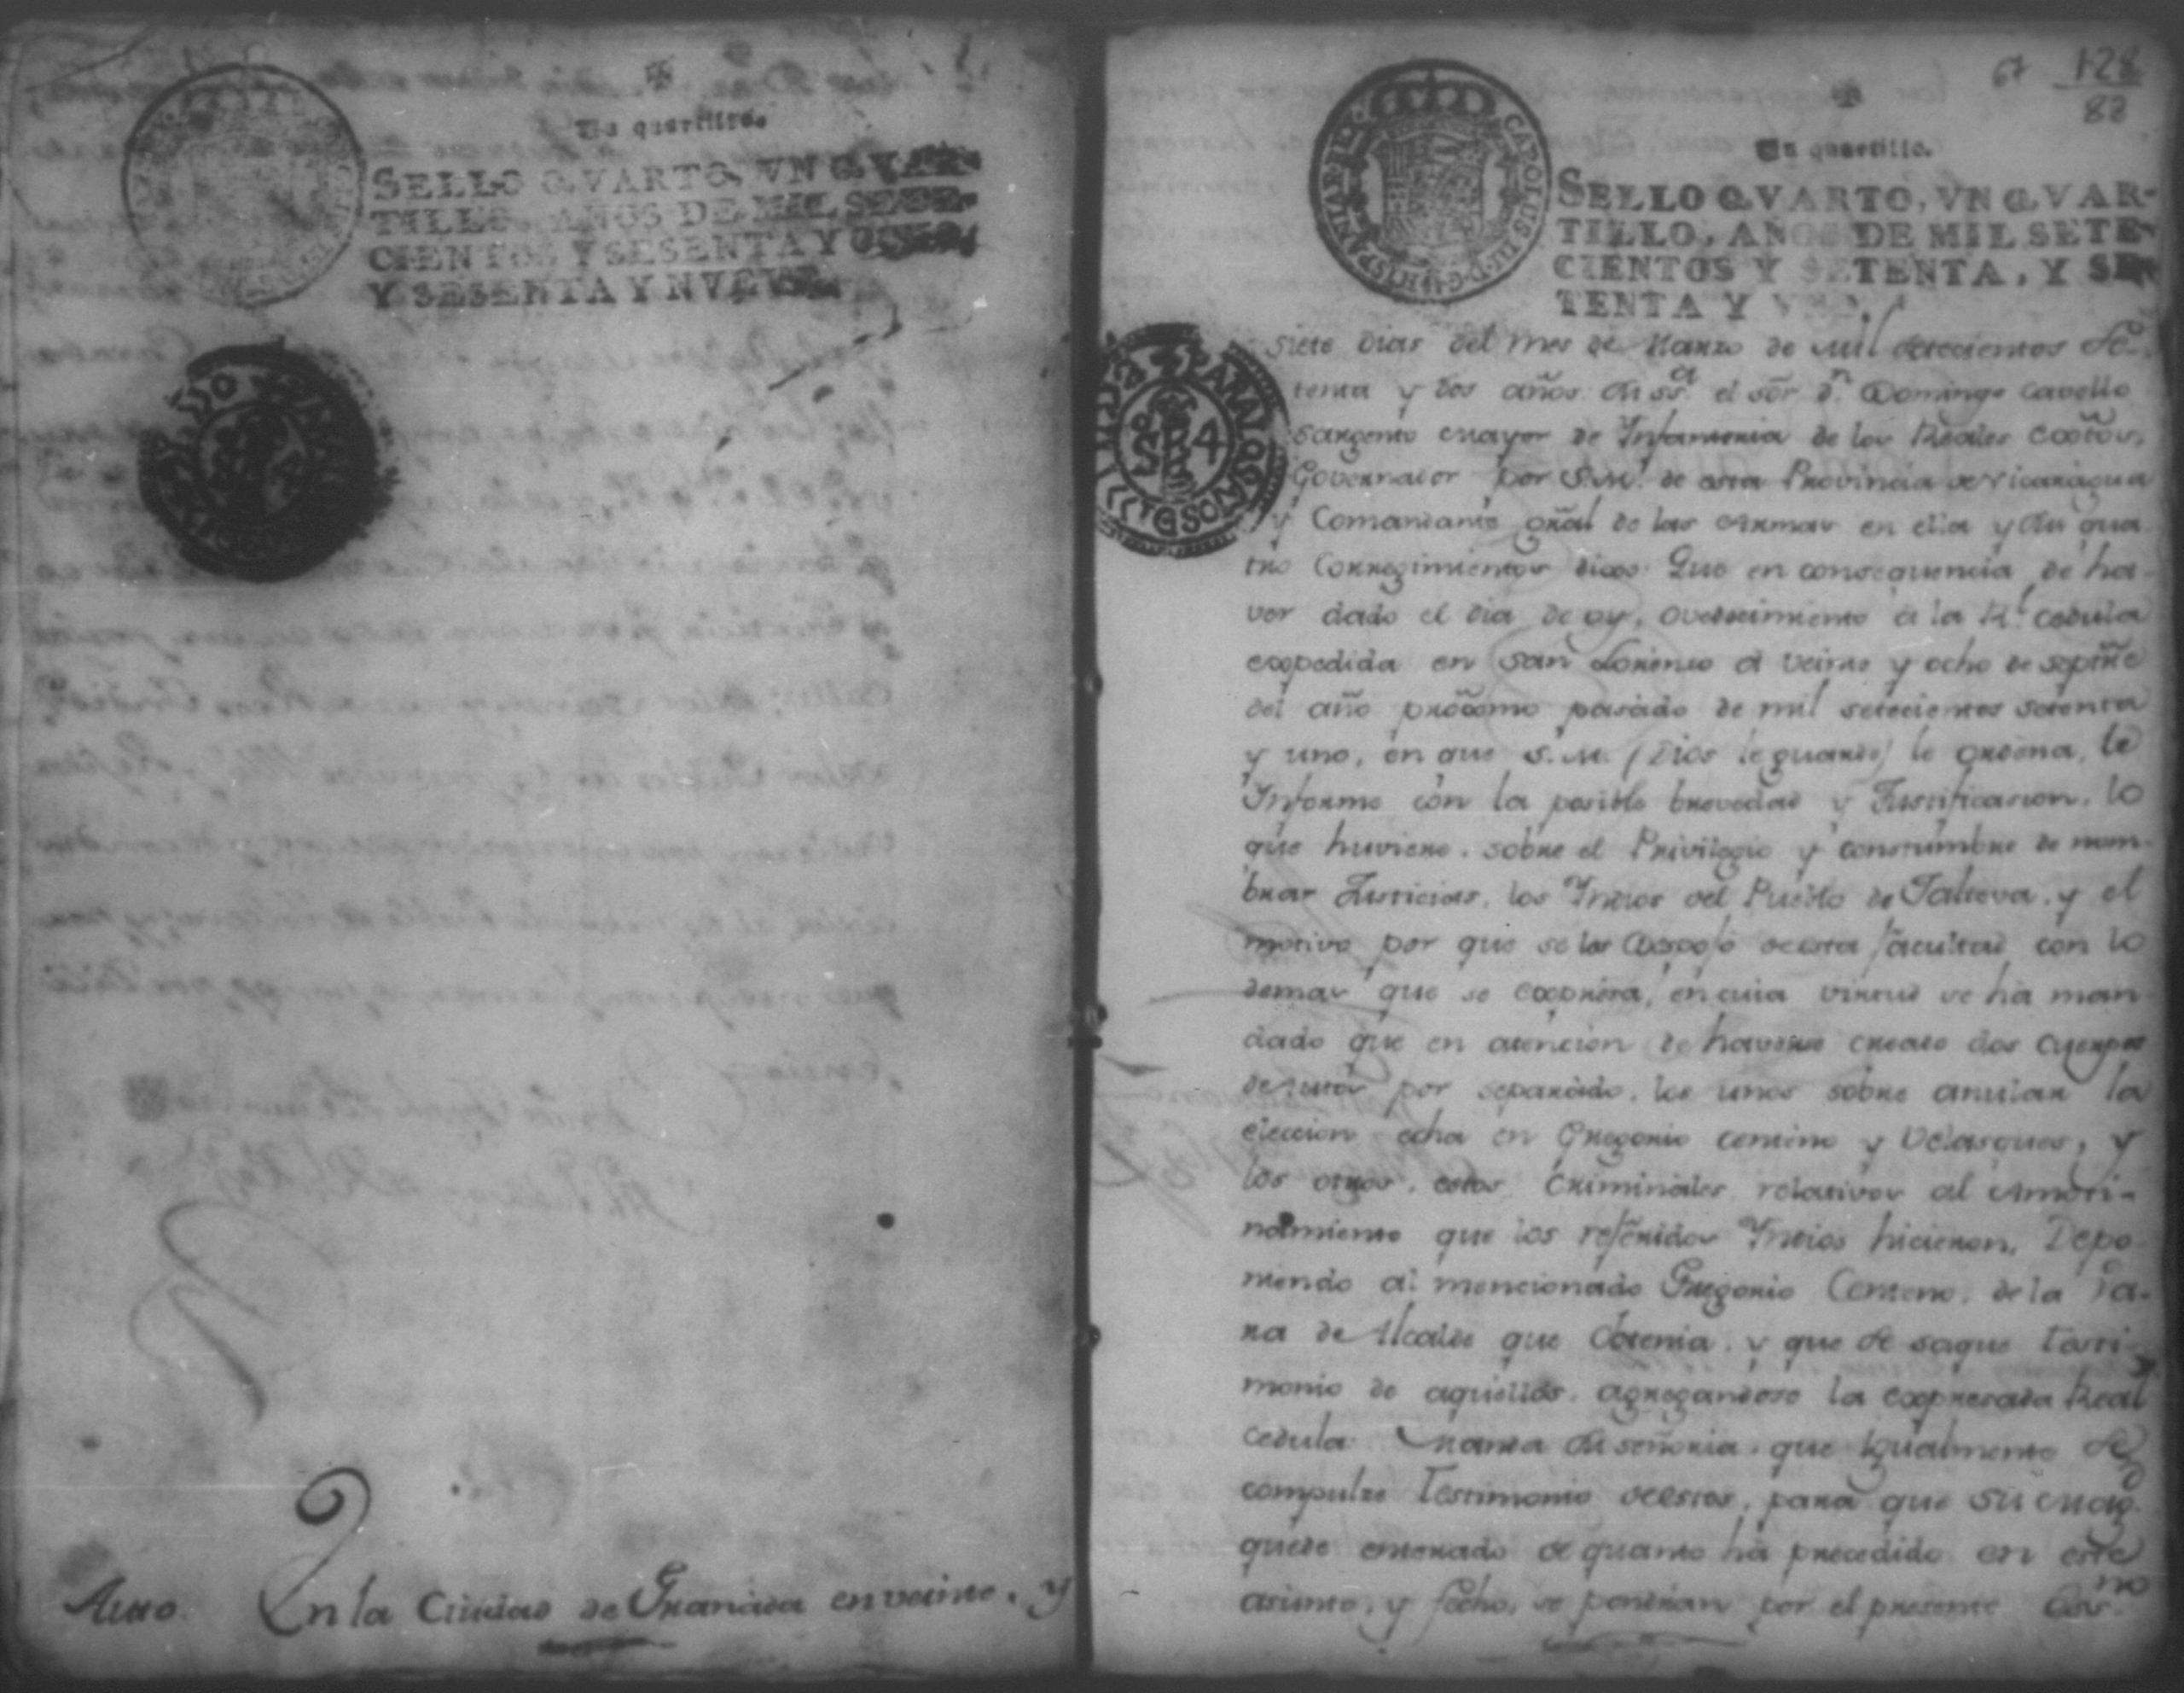 Un quartillo.
SELLO QVARTO, VN QVAR-
TILLO, AÑOS DE MIL SETE-
CIENTOS Y SESENTA Y OCHO,
Y SESENTA Y NVEVE.
Auto. En la Ciudad de Granada en veinte, y
67 128
82
Un quartillo.
SELLO QVARTO, VN QVAR-
TILLO, AÑOS DE MIL SETE-
CIENTOS Y SETENTA, Y SE-
TENTA Y VNO.
CAROLUS III D G HISPANIAR
PARA LOS AÑOS D
4
siete dias del mes de Marzo de mil setecientos Se-
tenta y dos años. Su Sª. el Sór Dⁿ. Domingo Cavello
Sargento mayor de Infanteria de los Reales Exõtos,
Governador por S.M. de esta Provincia de Nicaragua
y Comandante gñal de las Armas en ella y Su qua
tro Corregimientos dixo: Que en consequencia de ha-
ver dado el dia de oy, ovedecimiento á la Rˡ. cedula
expedida en San Lorenso á veinte y ocho de Sepñre
del año próxmo pasado de mil setecientos setenta
y uno, en que S.M. (Dios le guarde) le ordena, le
Informe con la posible brevedad y Justificacion, lo
que huviere, sobre el Privilegio y constumbre de nom-
brar Justicias, los Yndios del Pueblo de Jalteva, y el
motivo por que se les despojó de esta facultad con lo
demas que se expresa, en cuia virtud se há man
dado que en atencion de haverse creado dos cuerpos
de Autos por separado, los unos sobre anular la
eleccion echa en Gregorio Centeno y Velasques, y
los otros, estos Criminales relativos al Amoti-
namiento que los referidos Yndios hicieron, Depo-
niendo al mencionado Gregorio Centeno, de la Va-
ra de Alcalde que Obtenia, y que se saque Testi-
monio de aquellos, agregandose la expresada Real
cedula. Manda Su señoria, que Igualmente se
compulze Testimonio de estos, para que Su Magᵈ.
quede enterado de quanto há precedido en este
asunto, y fecho, se pondrán por el presente Esⁿᵒ